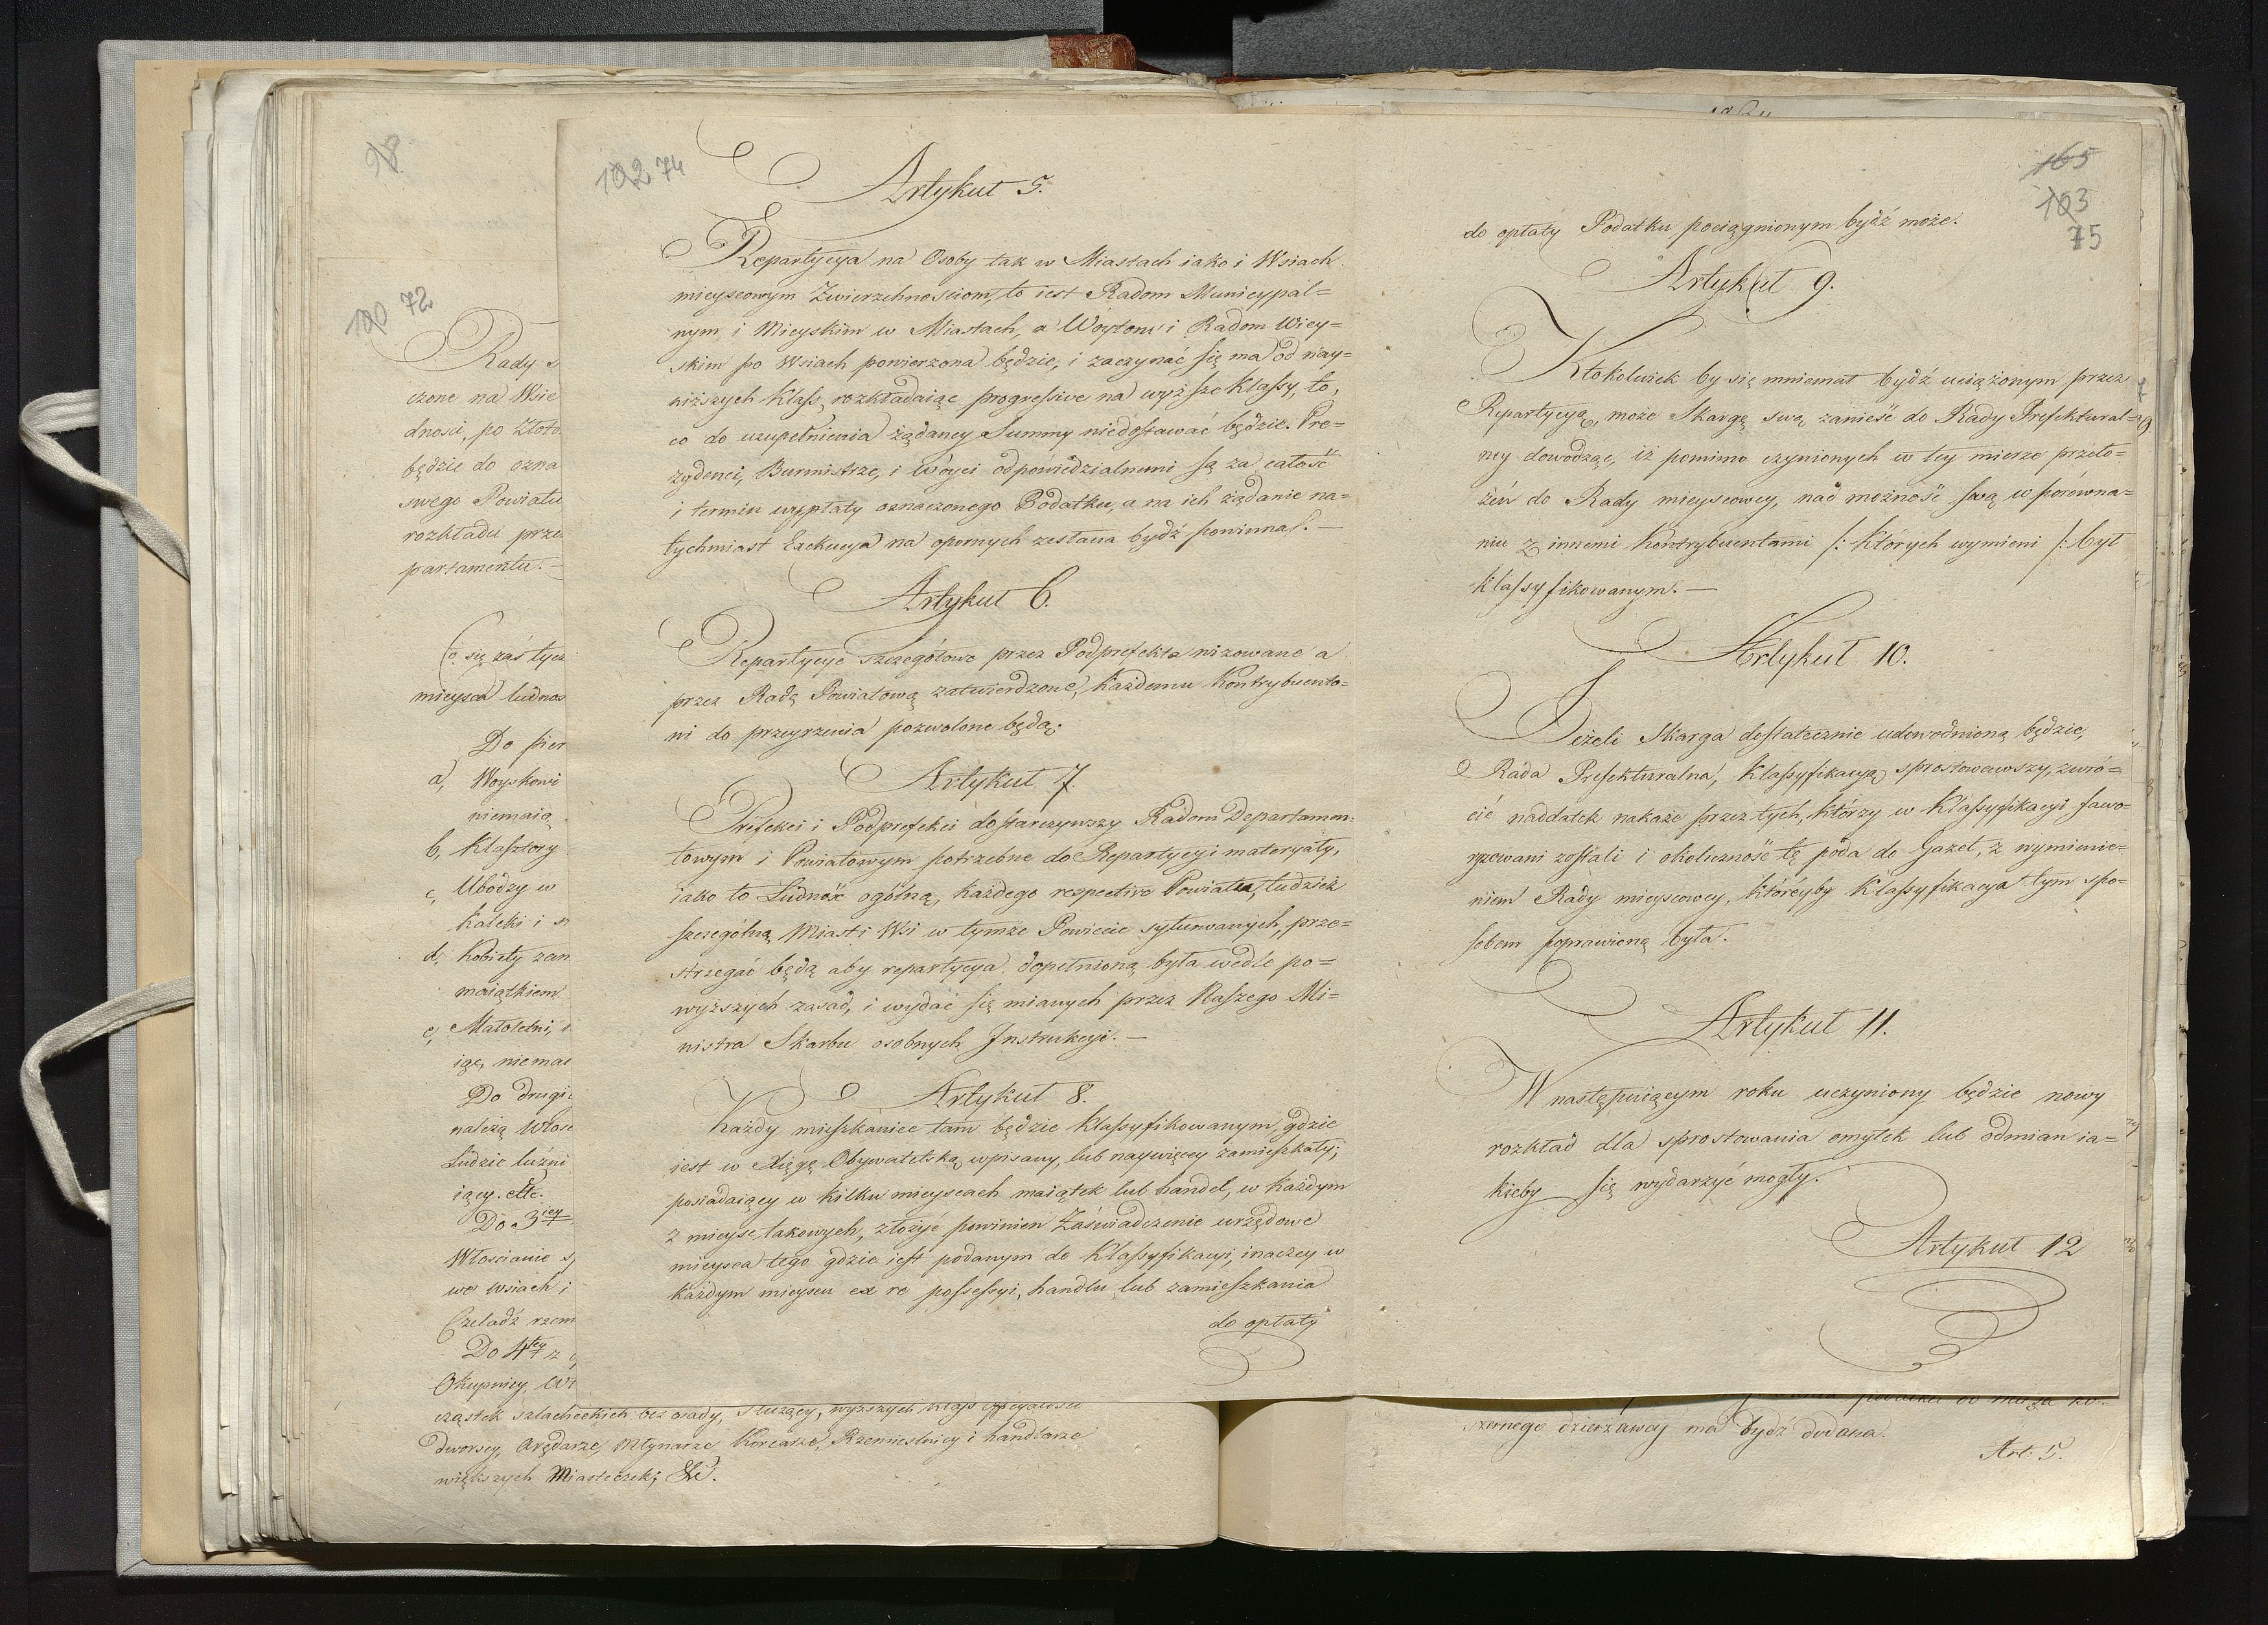 98
100 72
Rady
czone na Wsie
dnosci, po Złoto
będzie do ozna
swego Powiatu
rozkładu prze
partamentu. —
Co się zaś tycz
mieysca ludnos
Do pier
a, Woyskowi
niemaią
b, Klasztory
c, Ubodzy w
Kaleki i
d, Kobiety zam
maiątkiem
e, Małoletni,
iąc, niemai
Do drugi
należą Włosc
Ludzie luźni
iący. etc.
Do 3ciey
Włoscianie
we wsiach i
Czeladź rzem
Do 4tey
Okupnicy,
cząstek szlacheckich bez osady, służący, wyższych klass
dworscy, Arędarze, Młynarze, Korczarze, Rzemieslnicy i handlarze
większych Miasteczek, &c.
102 74
Artykuł 5.
Repartycya na Osoby tak w Miastach iako i Wsiach
mieyscowym Zwierzchnościom, to iest Radom Municypal=
nym i Mieyskim w Miastach, a Wóytom i Radom Wiey=
skim po Wsiach powierzona będzie, i zaczynać się ma od nay=
niższych Klass, rozkładaiąc progressive na wyższe Klassy, to,
co do uzupełnienia żądaney Summy niedostawać będzie. Pre=
zydenci, Burmistrze, i Wóyci odpowiedzialnemi są za całość
i termin wypłaty oznaczonego Podatku, a na ich żądanie na=
tychmiast Exekucya na opornych zesłana bydź powinna. —
Artykuł 6.
Repartycye szczegółowe przez Podprefekta nizowane a
przez Radę Powiatową zatwierdzone, każdemu Kontrybuento=
wi do przeyrzenia pozwolone będą.
Artykuł 7.
Prefekci i Podprefekci dostarczywszy Radom Departamen=
towym i Powiatowym potrzebne do Repartycyi materyały,
iako to Ludność ogólną, każdego respective Powiatu, tudzież
szczególną Miast i Wsi w tymże Powiecie sytuowanych, prze=
strzegać będą aby repartycya dopełnioną była wedle po=
wyższych zasad, i wydać się mianych przez Naszego Mi=
nistra Skarbu osobnych Instrukcyi. —
Artykuł 8.
Każdy mieszkaniec tam będzie klassyfikowanym, gdzie
iest w Xięgę Obywatelską wpisany, lub naywięcey zamieszkały;
posiadaiący w kilku mieyscach maiątek lub handel, w każdym
z mieysc takowych, złożyć powinien Zaświadczenie urzędowe
mieysca tego gdzie iest podanym do Klassyfikacyi, inaczey w
każdym mieyscu ex re possessyi, handlu, lub zamieszkania
do opłaty
165
103
75
do opłaty Podatku pociągnionym bydź może.
Artykuł 9.
Ktokolwiek by się mniemał bydź uciążonym przez
Repartycyą, może Skargę swą zanieść do Rady Prefektural=
ney dowodząc, iż pomimo czynionych w tey mierze przeło=
żeń do Rady mieyscowey, nad możność swą w porówna=
niu z innemi Kontrybuentami /: których wymieni /: był
klassyfikowanym. —
Artykuł 10.
Jeżeli Skarga dostatecznie udowodnioną będzie,
Rada Prefekturalna, Klassyfikacyą sprostowawszy, zwró=
cić naddatek nakaże przez tych, którzy w Klassyfikacyi fawo=
ryzowani zostali i okoliczność tę poda do Gazet, z wymienie=
niem Rady mieyscowey, któréyby Klassyfikacya tym spo=
sobem poprawioną była.
Artykuł 11.
W następuiącym roku uczyniony będzie nowy
rozkład dla sprostowania omyłek lub odmian ia=
kieby się wydarzyć mogły.
Artykuł 12
czernego dzierżawcy ma bydź dodana.
Art: 5.